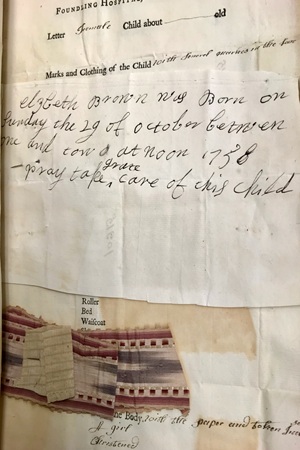 FOUNDLING HOSPITAL,
Letter Female Child about old
Marks and Clothing of the Child with several in the
elzbeth Brown was Born on
Sunday the 29 of october betwen
one and tow at noon 1758
pray take grate care of this Child
Roller
Bed
Waistcoat
the Body, with the paper and
A girl
Christened